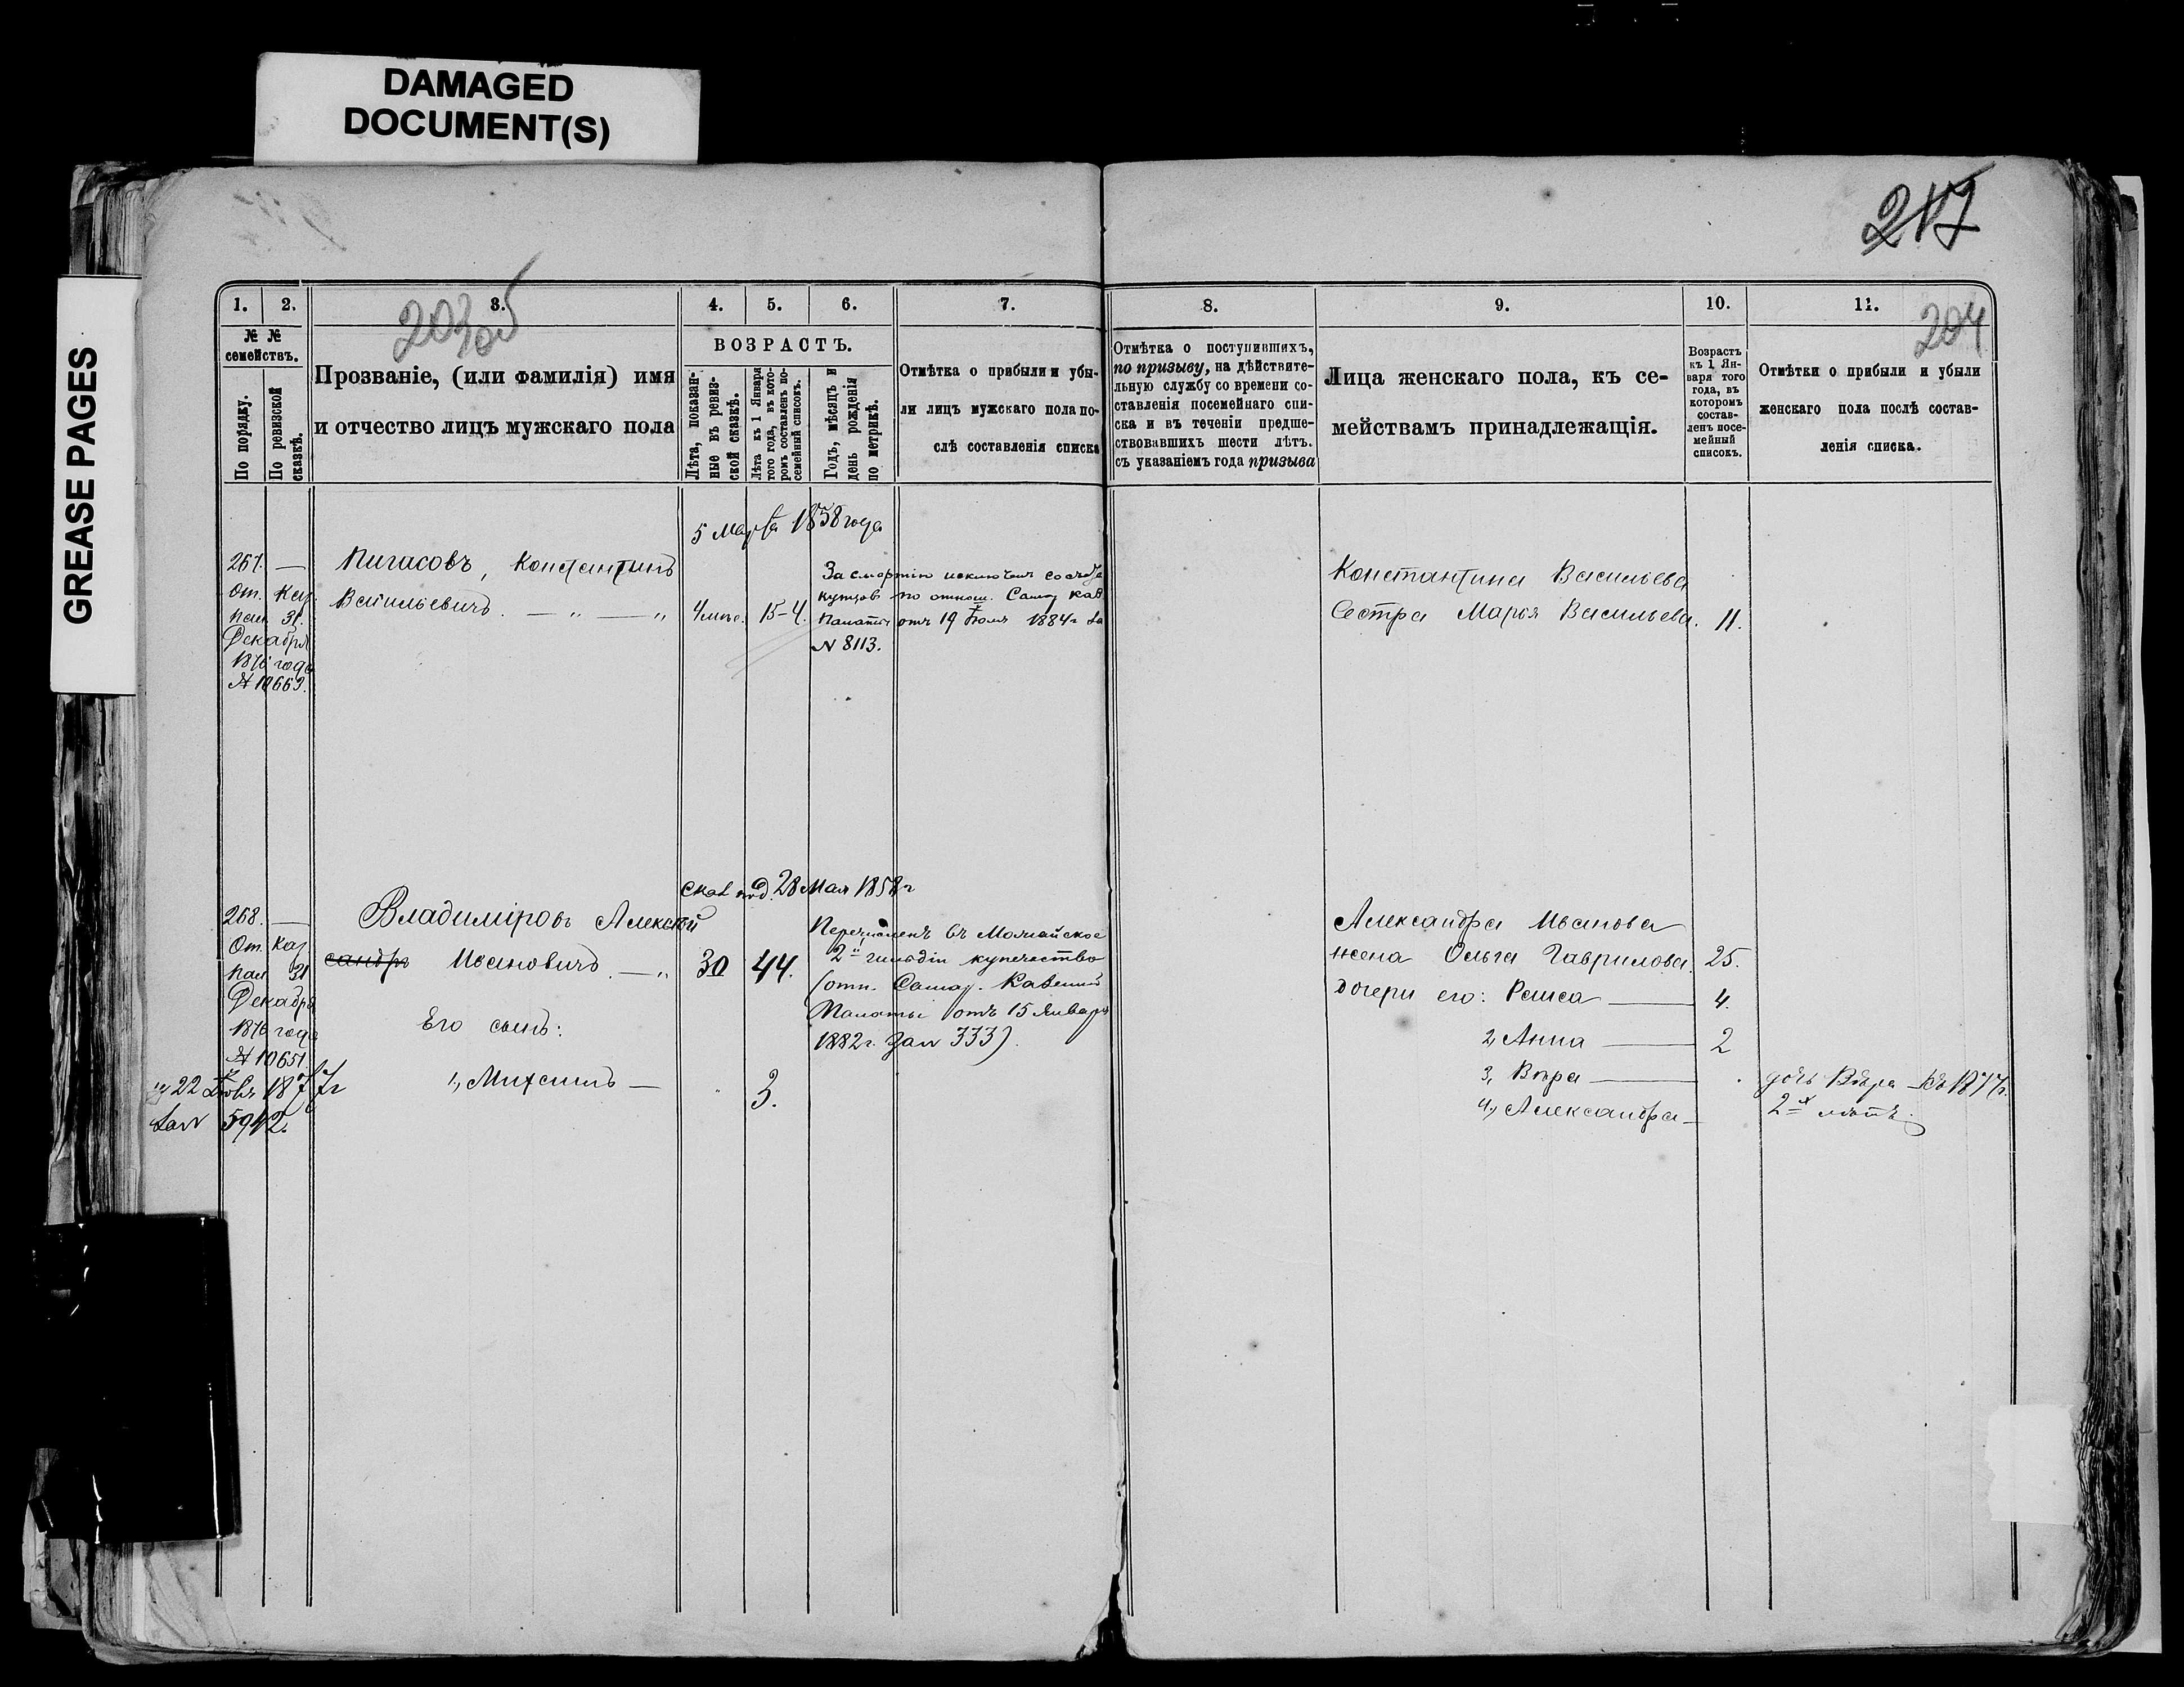 DAMAGED
DOCUMENT(S)
GREASE PAGES
217
203 об
204
1.
2.
3.
4.
5.
6.
7.
8.
9.
10.
11.
№ №
семействъ.
По порядку.
По ревизской
сказкѣ.
Прозваніе, (или фамилія) имя
и отчество лицъ мужскаго пола
ВОЗРАСТЪ.
Лѣта, показан-
ные въ ревиз-
ской сказкѣ.
Лѣта къ 1 Января
того года, въ кото-
ромъ составленъ по-
семейный списокъ.
Годъ, мѣсяцъ и
день рожденія
по метрикѣ.
Отмѣтка о прибыли и убы-
ли лицъ мужскаго пола по-
слѣ составленія списка
Отмѣтка о поступившихъ,
по призыву, на дѣйствите-
льную службу со времени со-
ставленія посемейнаго спи-
ска и въ теченіи предше-
ствовавшихъ шести лѣтъ.
съ указаніемъ года призыва
Лица женскаго пола, къ се-
мействамъ принадлежащія.
Возрастъ
къ 1 Ян-
варя того
года, въ
которомъ
состав-
ленъ посе-
мейный
списокъ.
Отмѣтки о прибыли и убыли
женскаго пола послѣ состав-
ленія списка.
5 Марта 1858 года
267. —
От. Каз.
пал 31.
Декабря
1876 года
№ 10663.
Пигасовъ, Константинъ
Васильевичъ — „ — „
4 мѣс. 15-4.
За смертію исключенъ
купцов по отнош. Самар Каз
Палаты отъ 19 Іюля 1884 г за
№ 8113.
Константина Васильева
Сестра Марья Васильева. 11.
28 Мая 1858 г
268. —
От. Каз.
пал 31
Декабря
1876 года
№ 10651.
22 1877 г
за № 5942.
Владиміровъ Алексѣй
сандръ Ивановичъ — „ 30 44.
Его сынъ:
1, Михаилъ — 3.
Перечисленъ въ
2й гильдіи купечество
(отн. Самар. Казенной
Палаты отъ 15 Января
1882 г. за № 333).
Александра Иванова
жена Ольга Гаврилова. 25.
Дочери его: Раиса — 4.
2, Анна — 2
3, Вѣра —
4, Александра —
дочь Вѣра 1877 г.
2х лѣтъ.